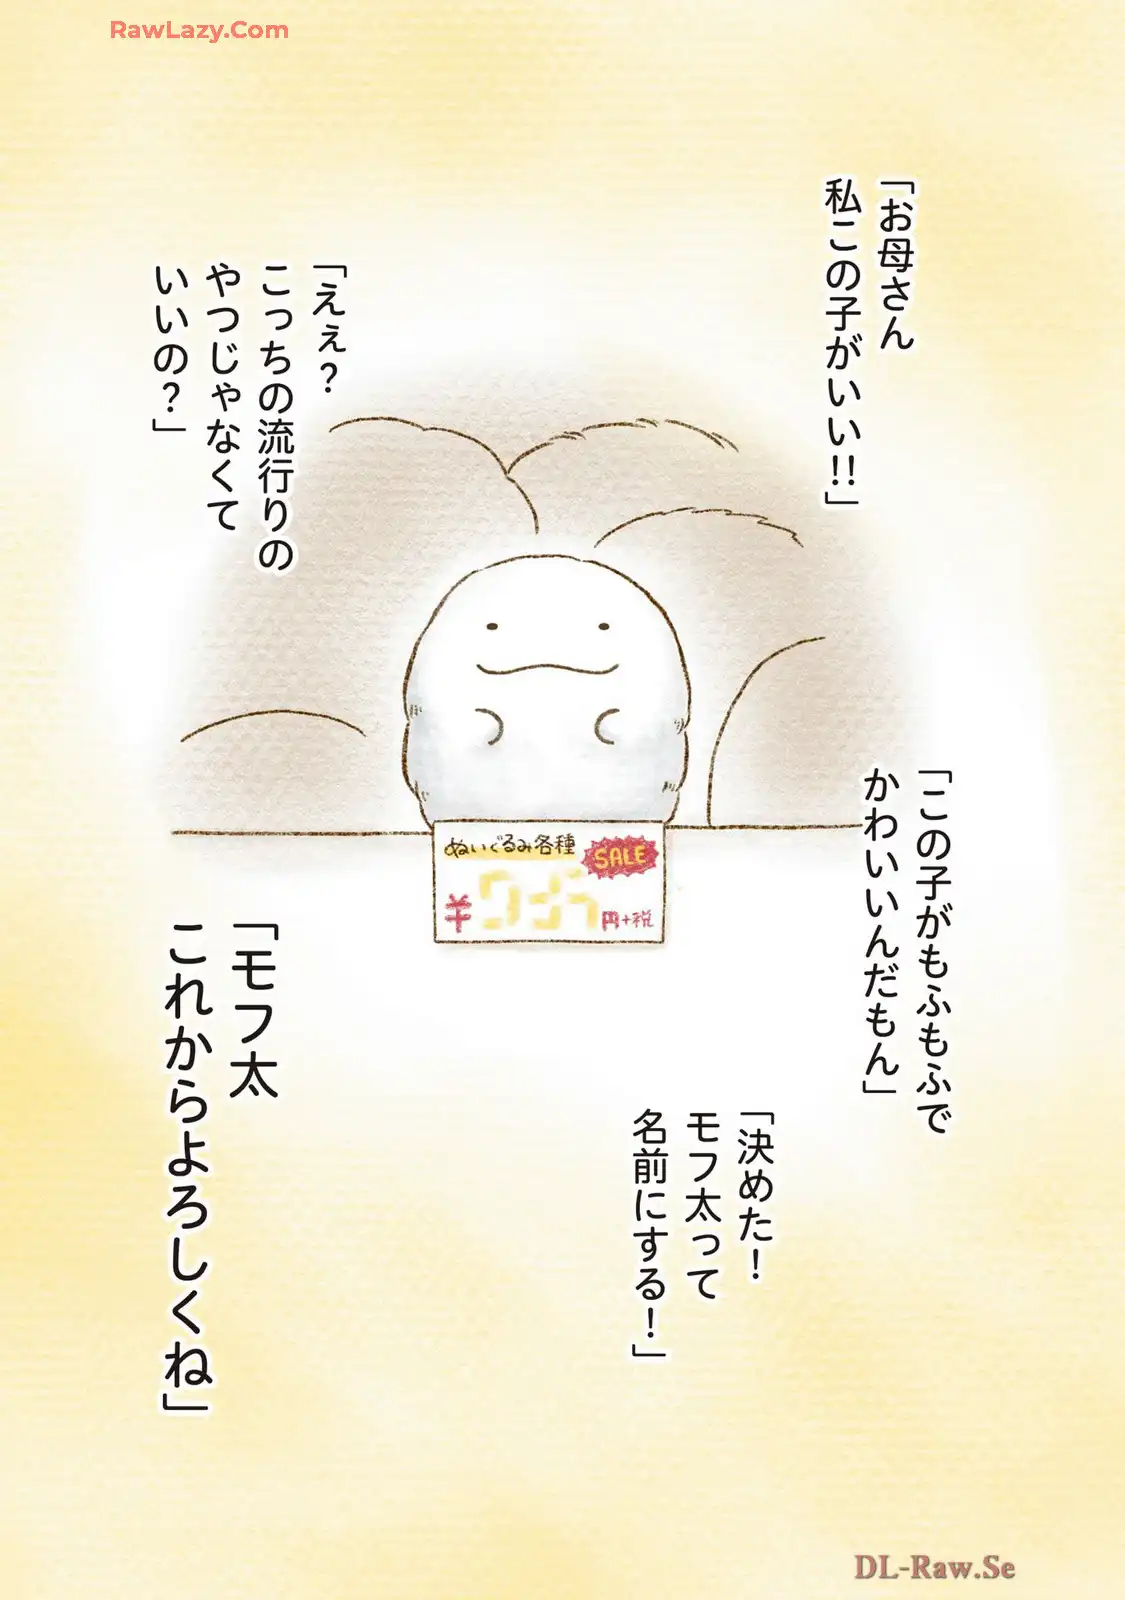 RawLazy.Com
「お母さん
私この子がいい!!」
「えぇ?
こっちの流行りの
やつじゃなくて
いいの?」
ぬいぐるみ各種
SALE
¥
円+税
「この子がもふもふで
かわいいんだもん」
「決めた!
モフ太って
名前にする!」
「モフ太
これからよろしくね」
DL-Raw.Se